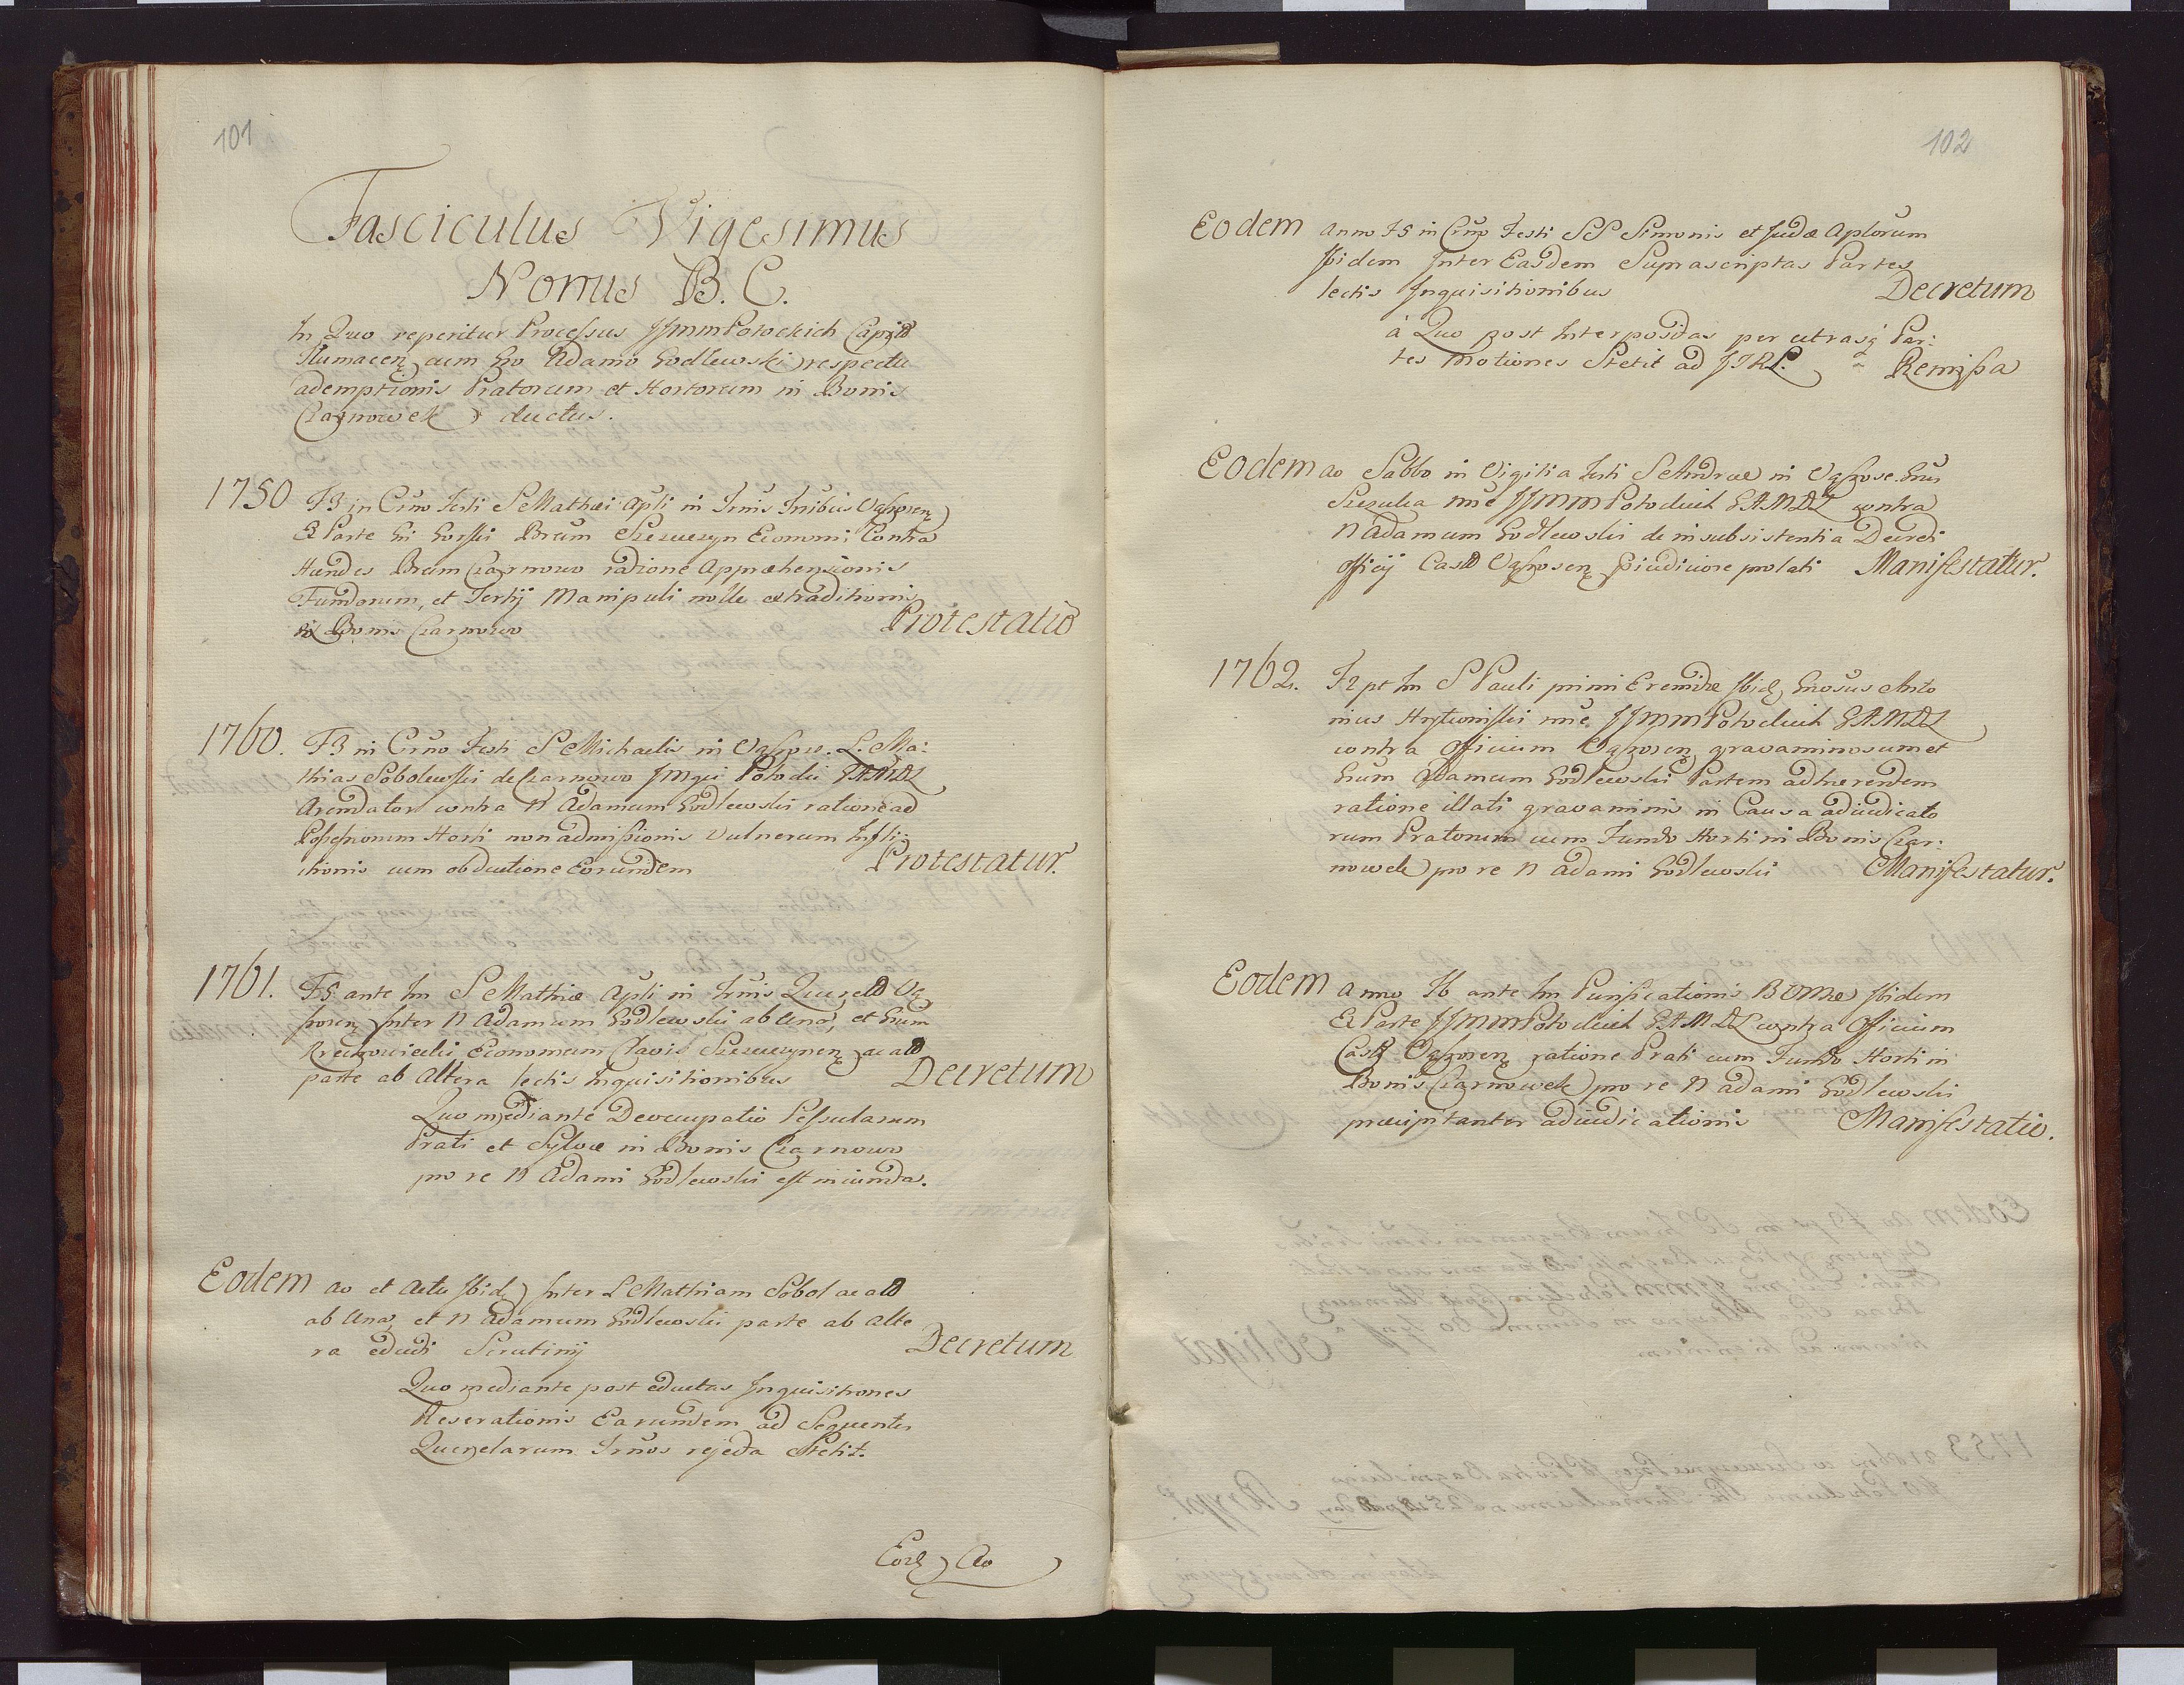 101
Fasciculus Vigesimus
Nonus B. C.
In Quo reperitur Processus JJmm Potockich Capit
Tłumacen cum Gro Adamo Godlewski respectu
ademptionis Pratorum et Hortorum in Bonis
Czarnowek ductus.
1750 F3 in Crno Festi S Mathæi Apli in Trnis Vąssosen
Ex Parte Gni Gorski Brum Szczuczyn Economi Contra
Haudes Brum Czarnowo ratione Appræhensionis
Fundorum, et Tertij Manipuli nolle extraditionis
ex Bonis Czarnowo Protestatio
1760. F3 in Crno Festi S Michaelis in Vąssow. L. Ma:
thias Sobolewski de Czarnowo Potocki GAMDL
Arendator contra N Adamum Godlewski ratione ad
Possessionem Horti non admissionis Vulnerum Infli:
tionis cum obductione Eorumdem Protestatur.
1761. F5 ante Im S Mathiæ Apli in Trnis Querel Vą
sosen Inter N Adamum Godlewski ab Una, et Grum
Economum Clavis Szczuczynen ac al
parte ab Altera lectis Inquisitionibus Decretum
Quo mediante Deoccupatio Pessularum
Prati et Sylvæ in Bonis Czarnowo
pro re N Adami Godlewski est iniunda.
Eodem ao et Actu Ibid Inter L Mathiam Sobol ac al
ab Una, et N Adamum Godlewski parte ab Alte
ra educti Scrutinij Decretum
Quo mediante post eductas Inquisitiones
Reserationis Earumdem ad Sequentes
Querelarum Trnos rejecta Stetit.
Eod Ao
102
Eodem Anno F5 in Crno Festi SS Simonis et Judæ Aplorum
Ibidem Inter Easdem Suprascriptas Partes
lectis Inquisitionibus Decretum
à Quo post Interpositas per utrasq Par:
tes Motiones Stetit ad JTRL. Remissa
Eodem ao Sabbo in Vigilia Festi S Andreæ in Vąssose. Grus
Szczuka nne JJmm Potockich GAMDL contra
N Adamum Godlewski de insubsistentia Decreti
Officij Cast Vąsosen præiudiciose prolati Manifestatur.
1762. F2 pt Im S Pauli primi Eremitæ Ibid, Gnosus Anto
nius nne JJmm Potockich GAMDL
contra Officium Vąsosen gravaminosum et
Grum Adamum Godlewski Partem adhærentem
ratione illati gravaminis in Causa adiudicato
rum Pratorum cum Fundo Horti in Bonis Czar:
nowek pro re N Adami Godlewski Manifestatur.
Eodem Anno F6 ante Im Purificationis BVMæ Ibidem
Ex Parte JJmm Potockich GAMDL contra Officium
Cast Vąsosen ratione Prati cum Fundo Horti in
Bonis Czarnowek pro re N Adami Godlewski
præcipitanter adiudicationis Manifestatio.